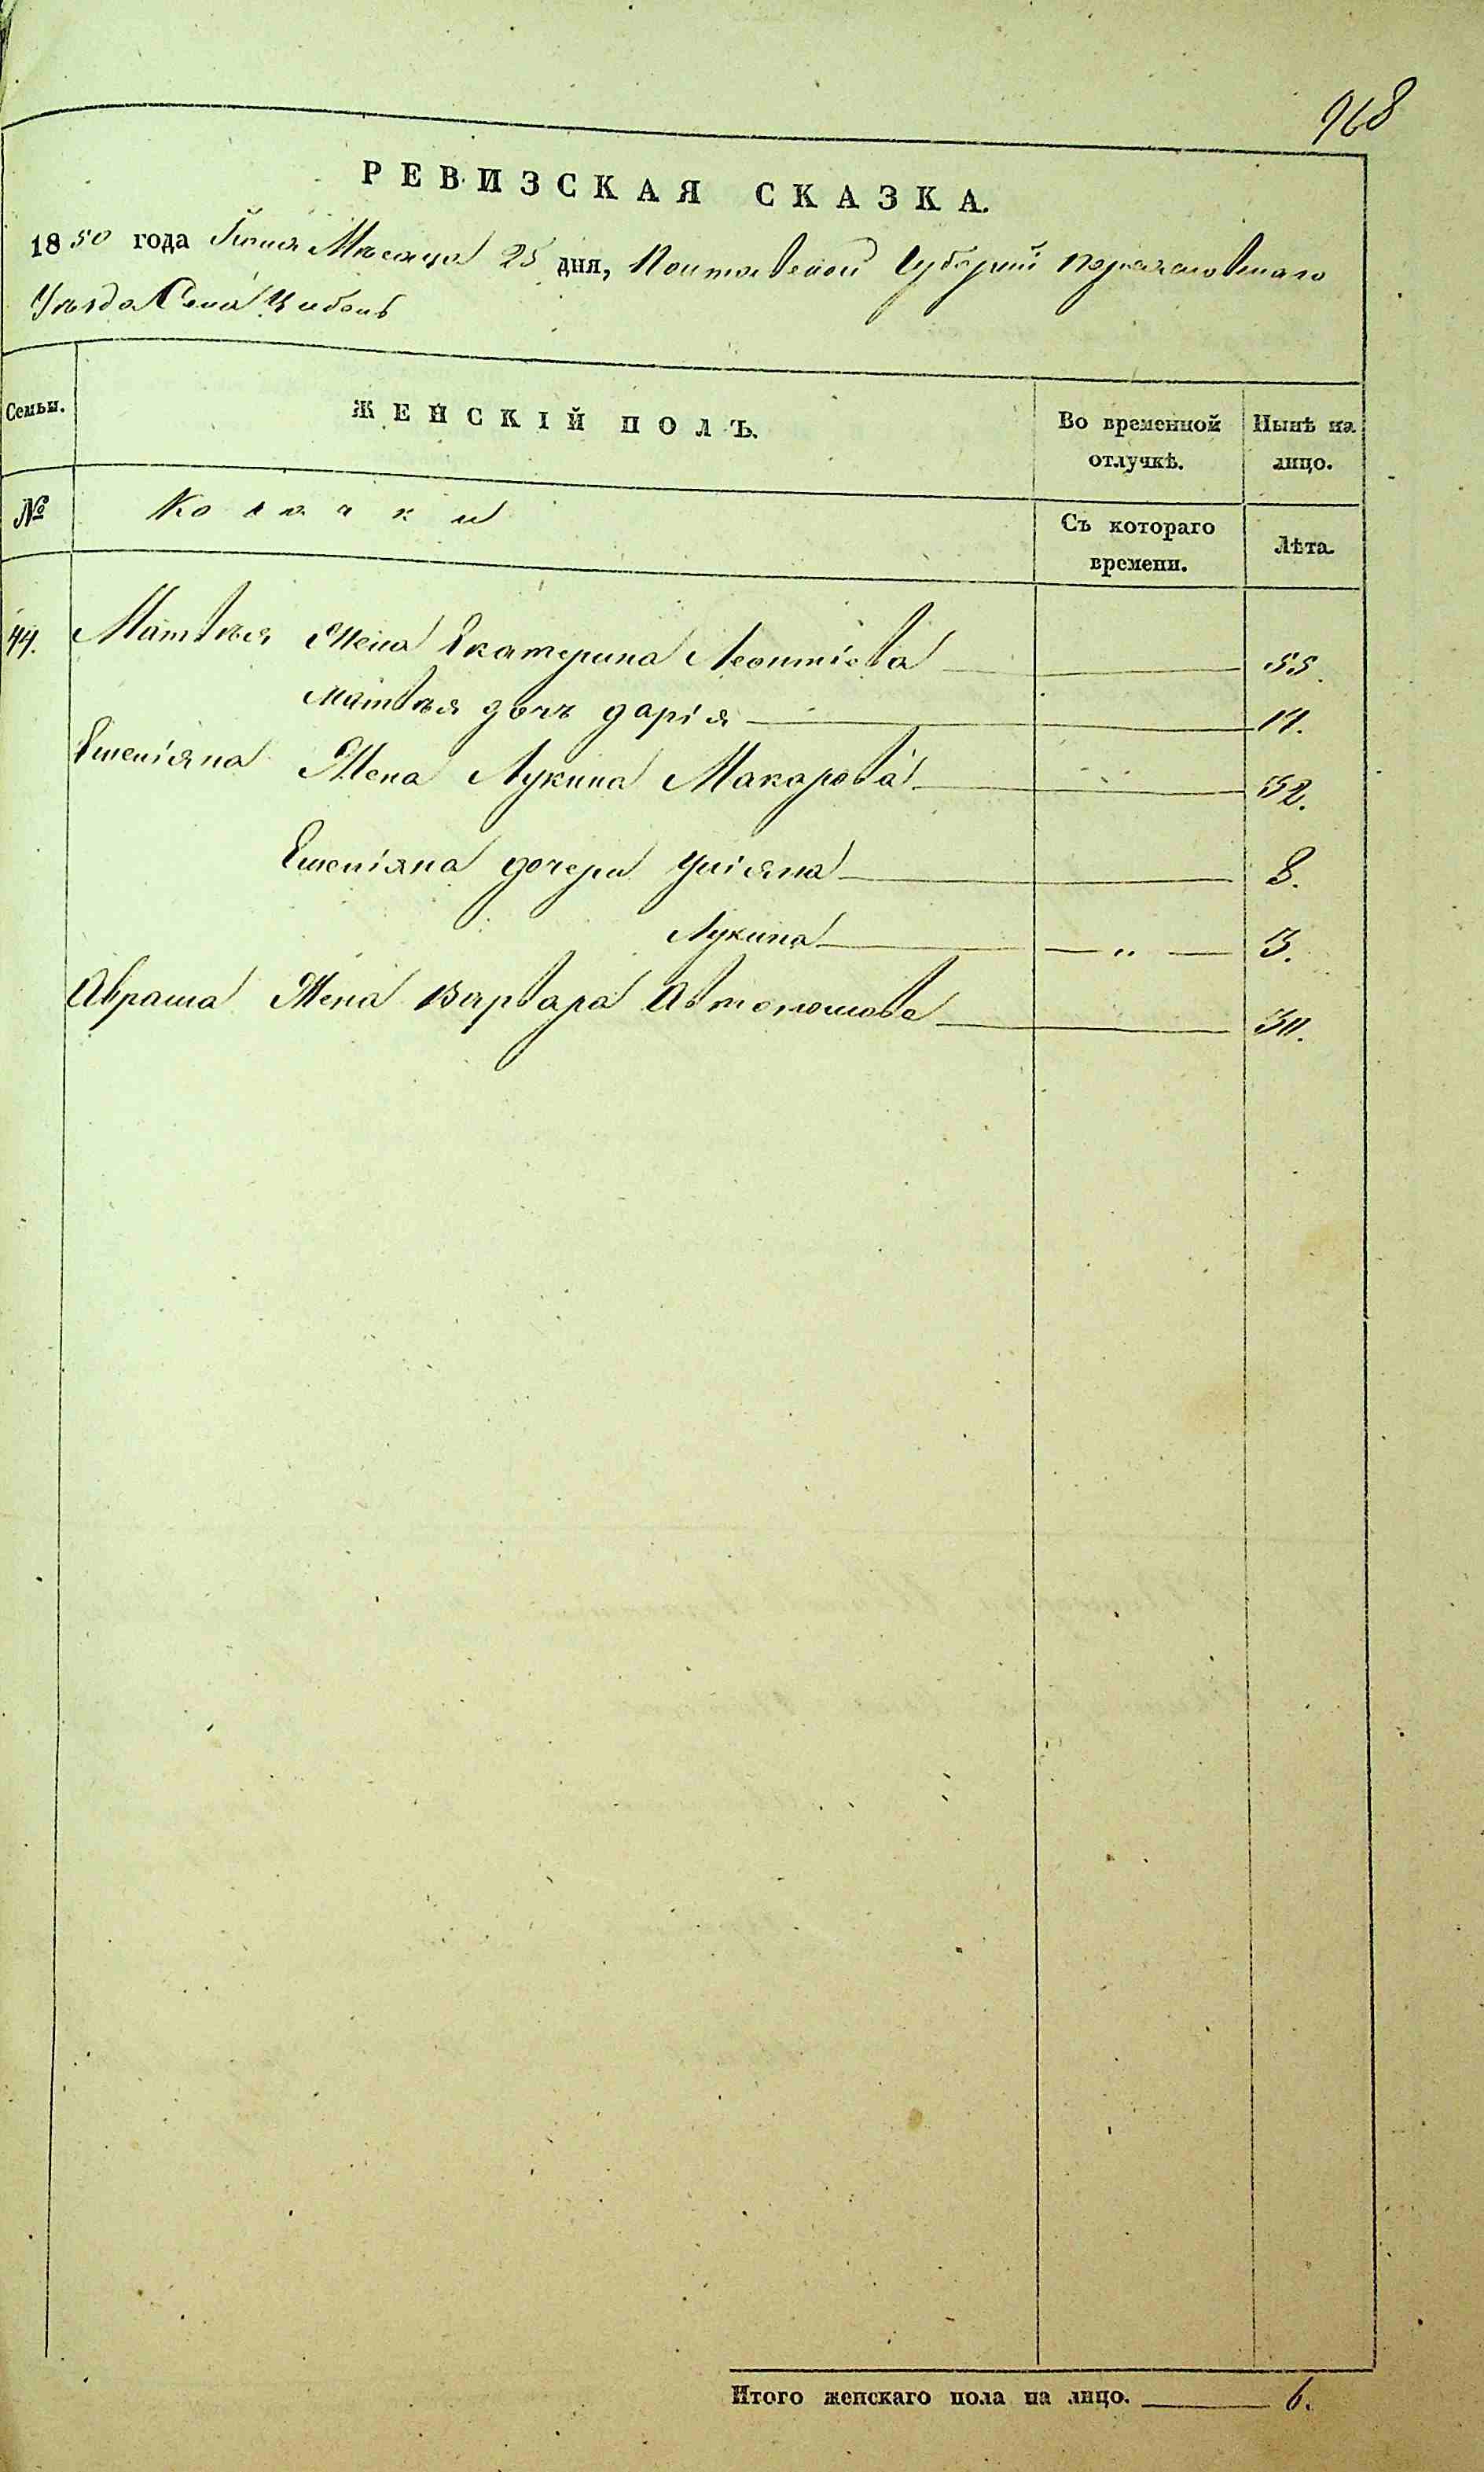 968
РЕВИЗСКАЯ СКАЗКА.
1850 года Іюня Мѣсяца 25 дня, Полтавской Губерніи Переяславскаго
Уѣзда Села Цибель
Семьи.
ЖЕНСКІЙ ПОЛЪ.
Во временной отлучкѣ.
Нынѣ на лицо.
№
Козачки
Съ котораго времени.
Лѣта.
44. Матвѣя Жена Екатерина Леонтіева 55.
Матвѣя дочь дарія 17.
Емеліяна Жена Лукина Макарова 32.
Емеліяна дочери Уліяна 8.
Лукина — „ — 3.
Абрама Жена Варвара Автономова 30.
Итого женскаго пола на лицо. 6.